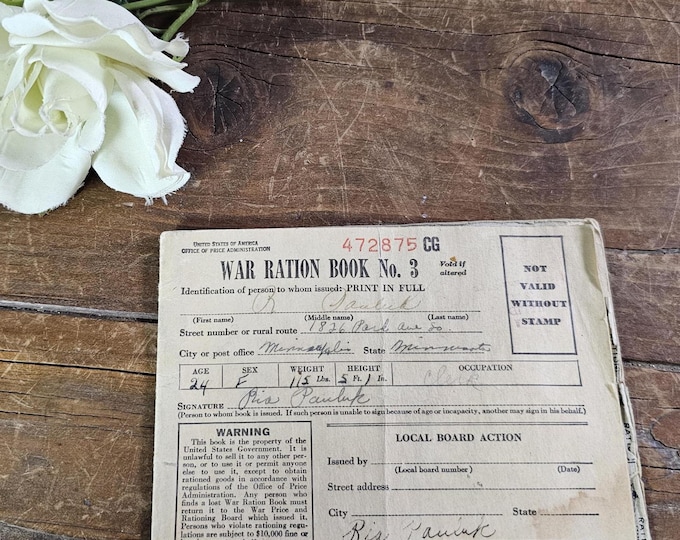 UNITED STATES OF AMERICA
OFFICE OF PRICE ADMINISTRATION
472875 CG
WAR RATION BOOK No. 3
Void if
altered
NOT
VALID
WITHOUT
STAMP
Identification of person to whom issued: PRINT IN FULL
R
(First name) (Middle name) (Last name)
Street number or rural route 1826 Park Ave So
City or post office Minneapolis State Minnesota
AGE SEX WEIGHT HEIGHT OCCUPATION
24 F 115 Lbs. 5 Ft. 1 In. Clerk
SIGNATURE Ria Pauluk
(Person to whom book is issued. If such person is unable to sign because of age or incapacity, another may sign in his behalf.)
WARNING
This book is the property of the
United States Government. It is
unlawful to sell it to any other per-
son, or to use it or permit anyone
else to use it, except to obtain
rationed goods in accordance with
regulations of the Office of Price
Administration. Any person who
finds a lost War Ration Book must
return it to the War Price and
Rationing Board which issued it.
Persons who violate rationing regu-
lations are subject to $10,000 fine or
LOCAL BOARD ACTION
Issued by
(Local board number) (Date)
Street address
City State
Ria Pauluk